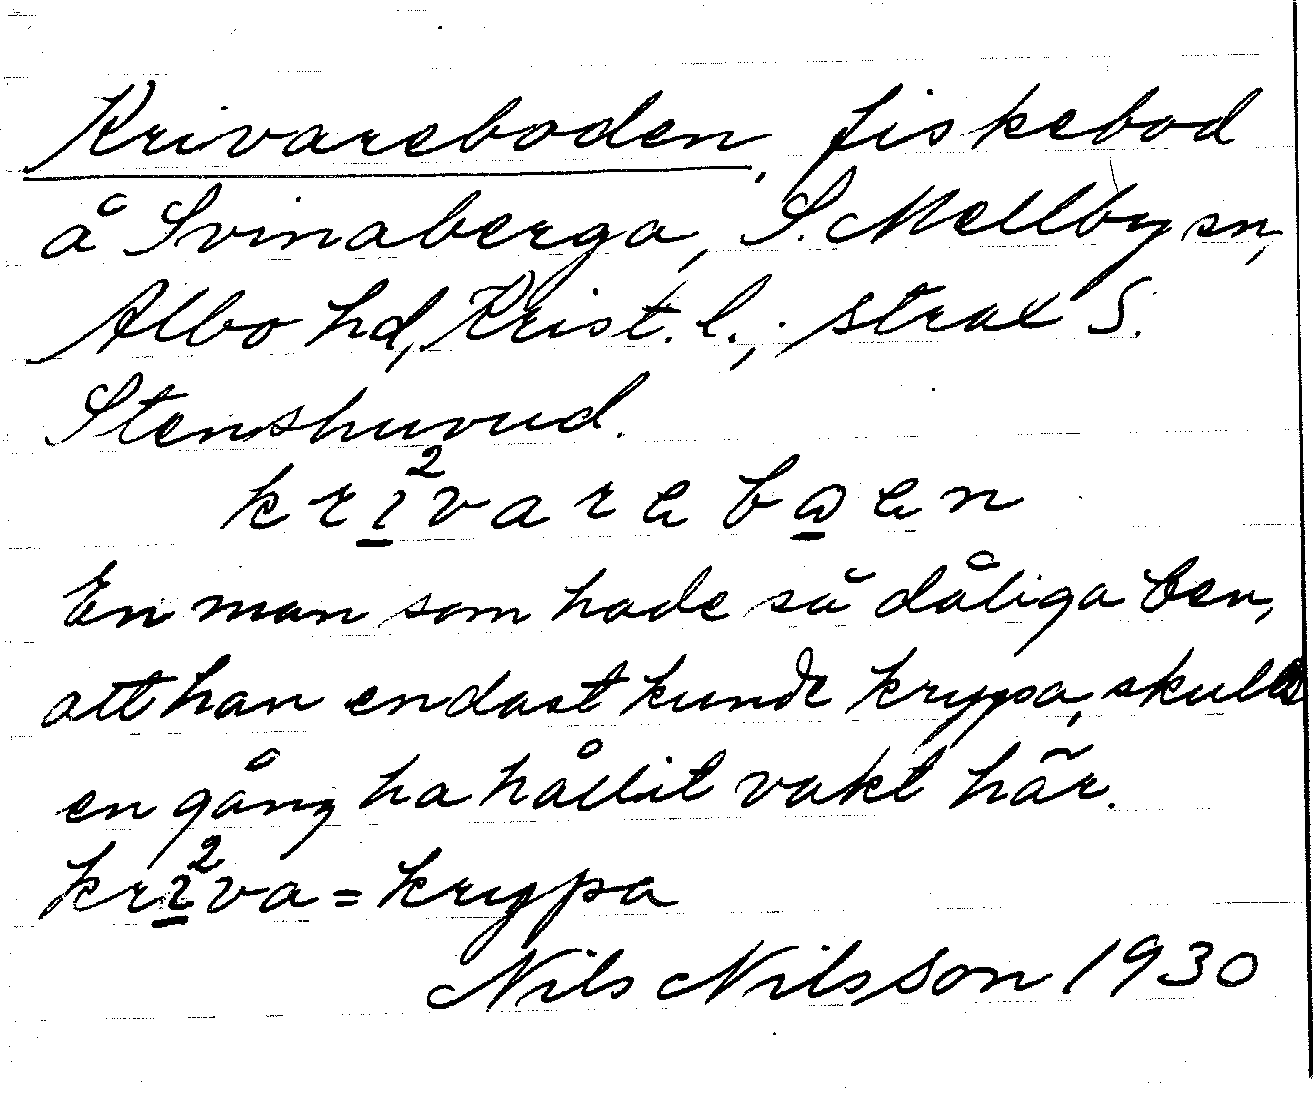 Krivareboden, fiskebod
å Svinaberga, S. Mellby sn,
Albo hd, Krist. l., strax S.
Stenshuvud.
kri̲²varebɷ̲en
En man som hade så dåliga ben,
att han endast kunde krypa, skulle
en gång ha hållit vakt här.
kri̲²va = krypa
Nils Nilsson 1930